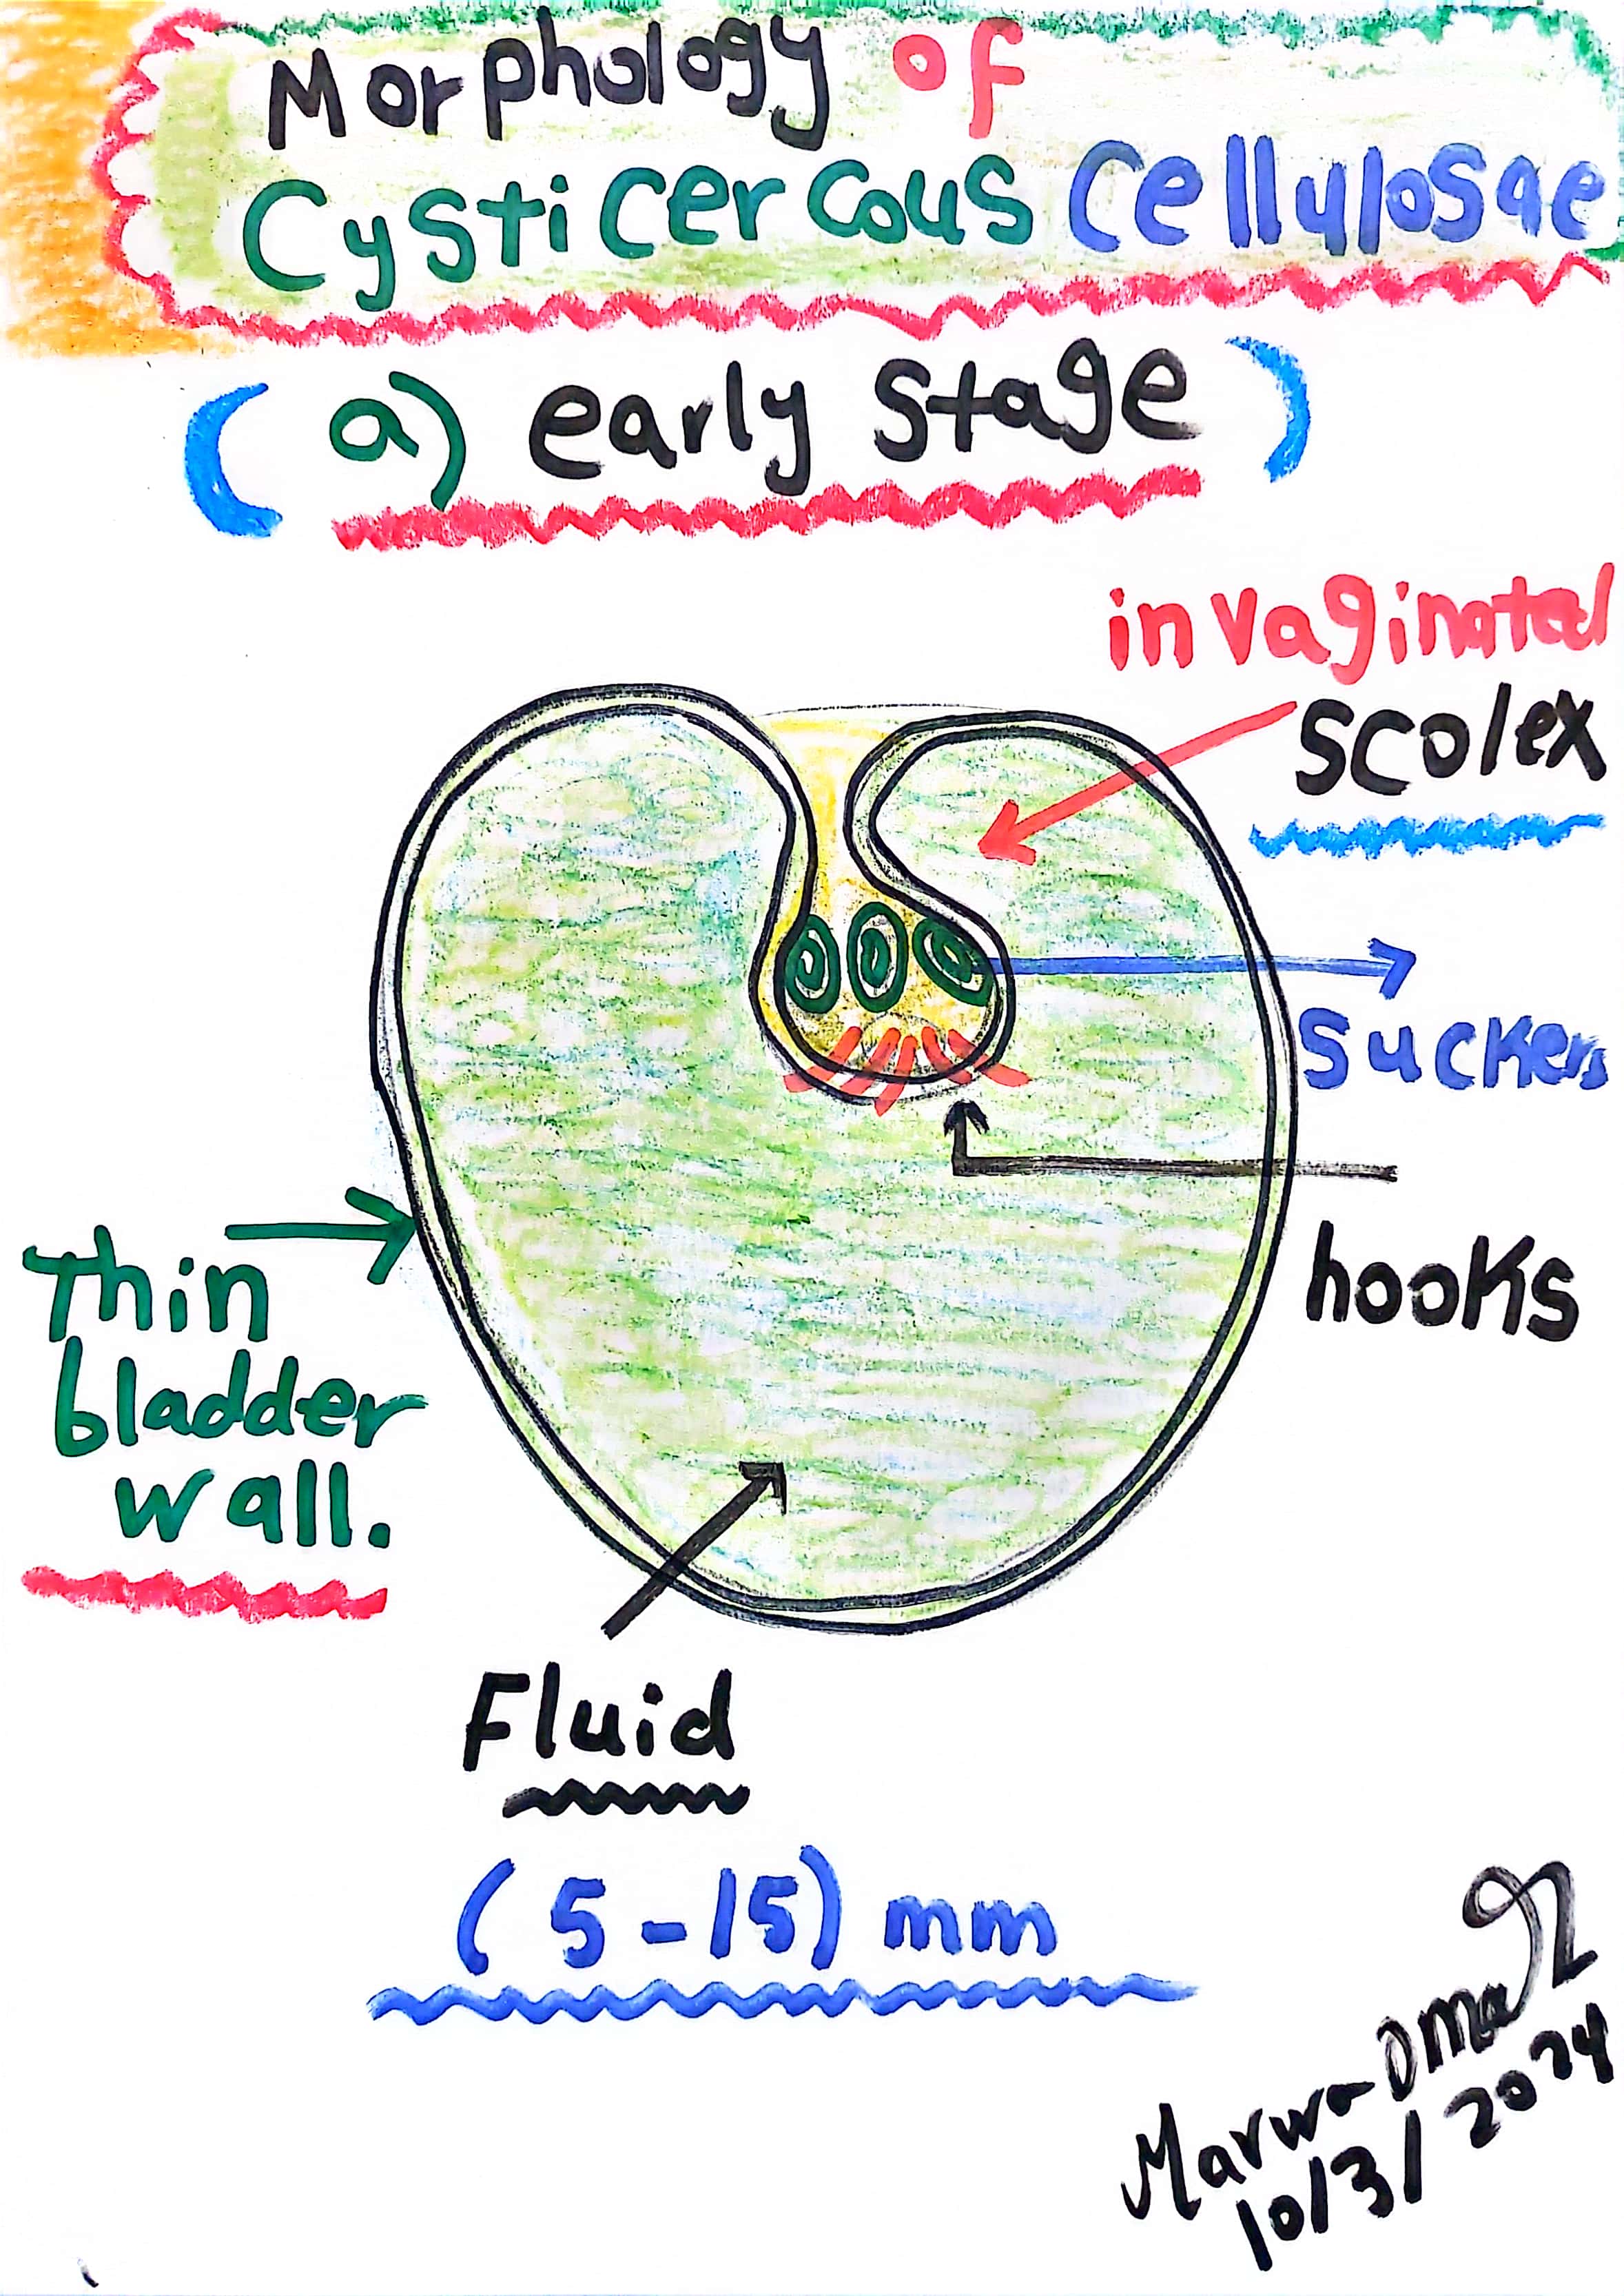 Morphology of
Cysticercous Cellulosae
(a) early stage)
invaginated
scolex
suckers
hooks
thin
bladder
wall.
Fluid
(5-15) mm
Marwa Omar
10/3/2024